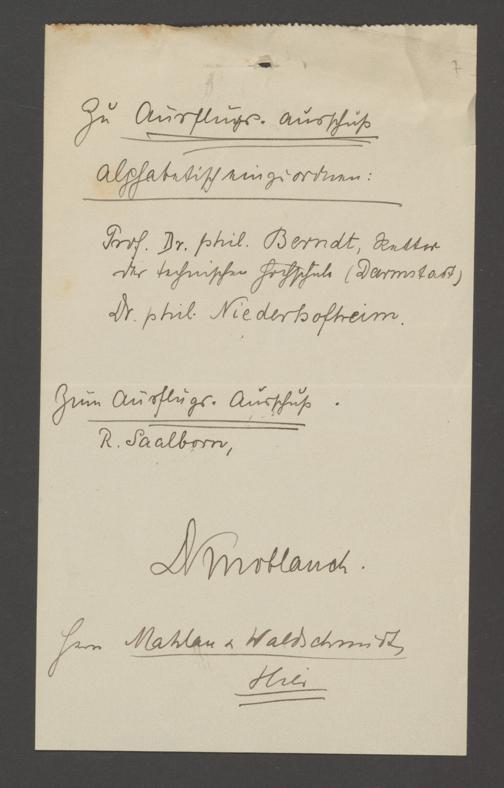 7
Zu Ausflugs-ausschuß
alphabetisch einzuordnen:
Prof. Dr. phil. Berndt, Rektor
der technischen Hochschule (Darmstadt)
Dr. phil. Niederhofheim.
Zum Ausflugs-Ausschuß.
R. Saalborn,
Herrn Mahlau & Waldschmidt,
Hier